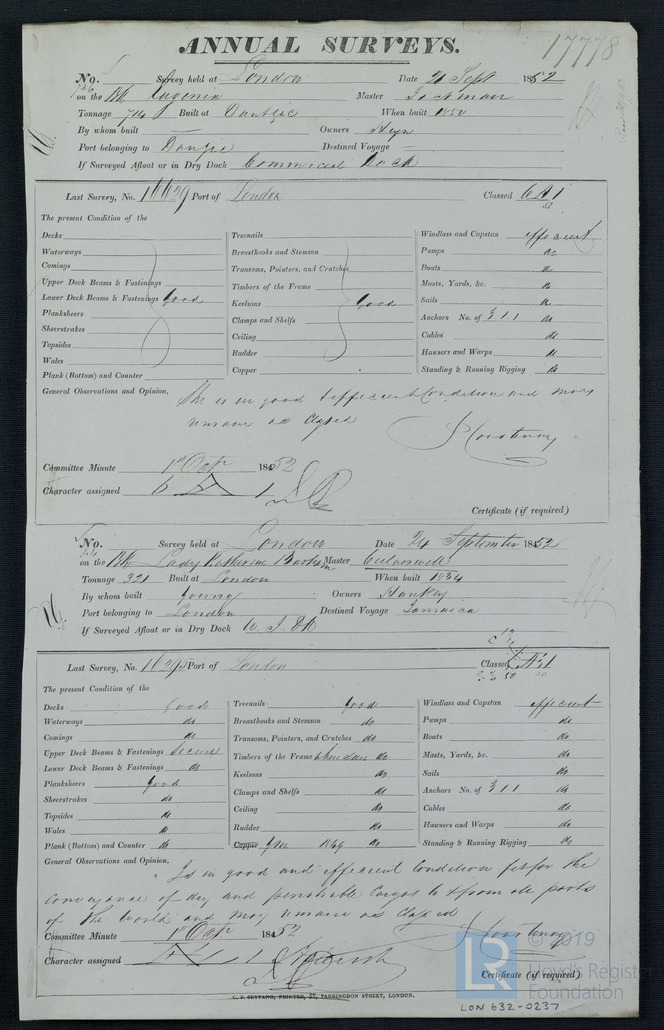 ANNUAL SURVEYS.
17778
No. Survey held at London Date 21 Sept 1852
726 on the Bk Eugenia Master
Tonnage 714 Built at Dantzic When built 1850
By whom built — Owners Heyn
Port belonging to Danzic Destined Voyage —
If Surveyed Afloat or in Dry Dock Commercial Dock
Last Survey, No. 16629 Port of London Classed 6 A 1
51
The present Condition of the
Decks
Waterways
Comings
Upper Deck Beams & Fastenings
Lower Deck Beams & Fastenings Good
Planksheers
Sheerstrakes
Topsides
Wales
Plank (Bottom) and Counter
Treenails
Breasthooks and Stemson
Transoms, Pointers, and Crutches
Timbers of the Frame
Keelsons Good
Clamps and Shelfs
Ceiling
Rudder
Copper
Windlass and Capstan efficient
Pumps do
Boats do
Masts, Yards, &c. do
Sails do
Anchors No. of 3 1 1 do
Cables do
Hawsers and Warps do
Standing & Running Rigging do
General Observations and Opinion, She is in good & efficient Condition and may
remain as Classed
J Courtenay
Committee Minute 1st Oct 1852
Character assigned 6 A 1
Certificate (if required)
No. Survey held at London Date 24 September 1852
on the Bk Lady Katherine Barham Master
Tonnage 321 Built at London When built 1834
By whom built Young Owners Hankey
Port belonging to London Destined Voyage Jamaica
If Surveyed Afloat or in Dry Dock W. I. Dk
Last Survey, No. Port of London Classed A 1
The present Condition of the
Decks Good
Waterways do
Comings do
Upper Deck Beams & Fastenings Secure
Lower Deck Beams & Fastenings do
Planksheers Good
Sheerstrakes do
Topsides do
Wales do
Plank (Bottom) and Counter do
Treenails Good
Breasthooks and Stemson do
Transoms, Pointers, and Crutches do
Timbers of the Frame where seen do
Keelsons do
Clamps and Shelfs do
Ceiling do
Rudder do
Copper do
Windlass and Capstan efficient
Pumps do
Boats do
Masts, Yards, &c. do
Sails do
Anchors No. of 3 1 1 do
Cables do
Hawsers and Warps do
Standing & Running Rigging do
General Observations and Opinion, Is in good and efficient Condition fit for the
conveyance of dry and perishable Cargos to & from all parts
of the World and may remain as Classed
J Courtenay
Committee Minute 1st Oct 1852
Character assigned
Certificate (if required)
C. F. SEYFANG, PRINTER, 57, FARRINGDON STREET, LONDON.
LR © 2019
Lloyd's Register
Foundation
LON 632-0237